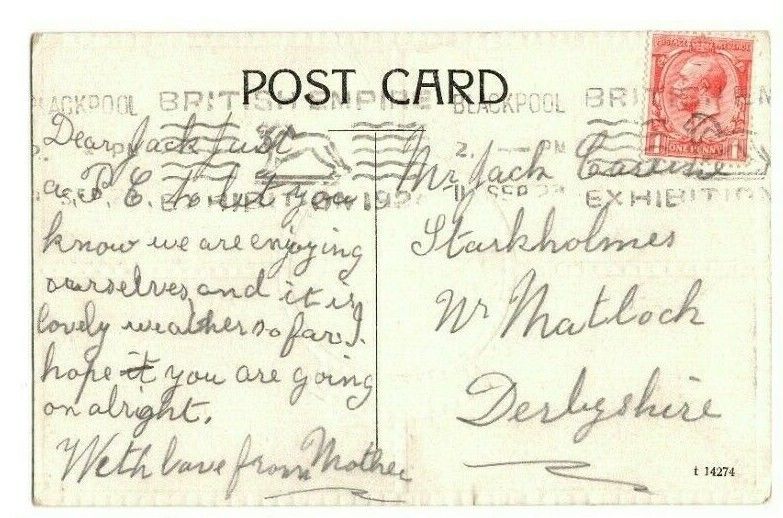 POST CARD
BLACKPOOL BRITISH EMPIRE BLACKPOOL BRITISH EM
PM 2. PM
SEP EXHIBITION 192 11 SEP EXHIBITION
ONE PENNY
Dear Jack Just
a P. C. to let you
know we are enjoying
ourselves and it is
lovely weather so far I
hope it you are going
on alright.
With love from Mother
Mr Jack
Starkholmes
Nr Matlock
Derbyshire
t 14274